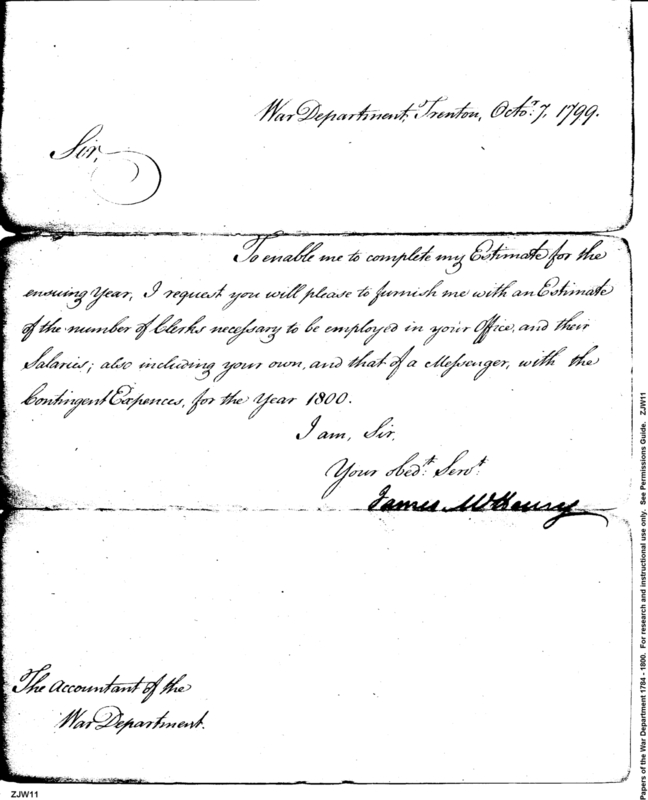 War Department, Trenton, Octor. 7, 1799.
Sir,
To enable me to complete my Estimate for the
ensuing Year, I request you will please to furnish me with an Estimate
of the number of Clerks necessary to be employed in your Office, and their
Salaries; also including your own, and that of a Messenger, with the
Contingent Expences, for the Year 1800.
I am, Sir,
Your Obedt. Servt.
James McHenry
The Accountant of the
War Department.
ZJW11
Papers of the War Department 1784 - 1800. For research and instructional use only. See Permissions Guide. ZJW11